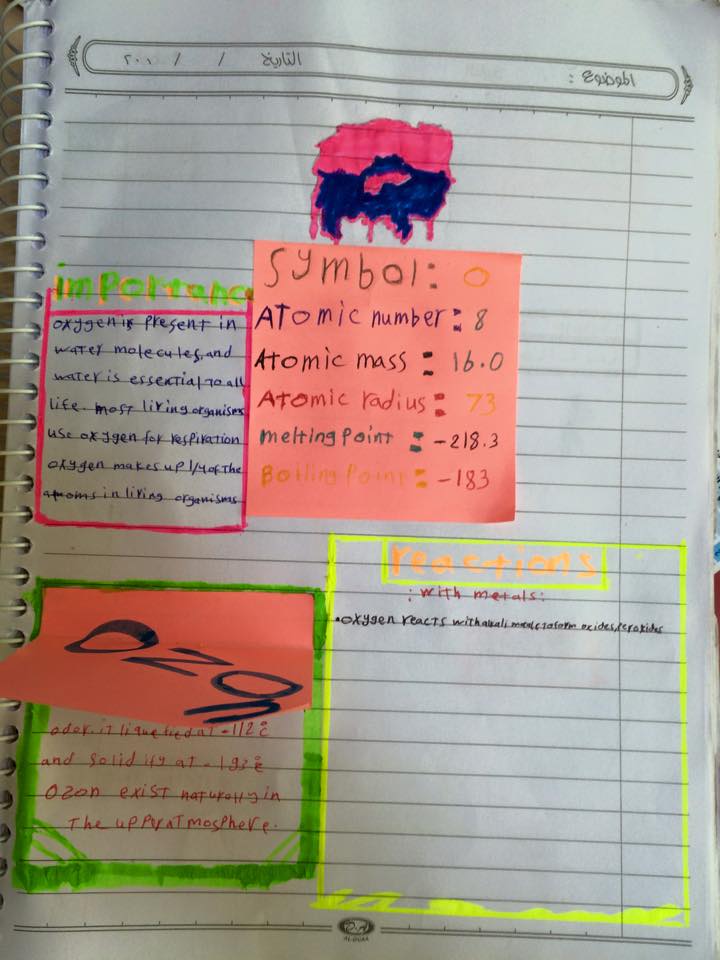 الموضوع :
التاريخ / / ٢٠٠
Symbol: O
Atomic number: 8
Atomic mass: 16.0
Atomic radius: 73
melting Point: -218.3
Boiling Point: -183
importance
oxygen is present in
water molecules, and
water is essential to all
life. most living organisms
use oxygen for respiration
oxygen makes up 1/4 of the
atoms in living organisms
reactions
: with metals:
.oxygen reacts with alkali metals to form oxides, peroxides
OZON
odor. it liquefied at -112 c
and solidify at -193 c
Ozon exist naturally in
The upper atmosphere.
AL-DUAA